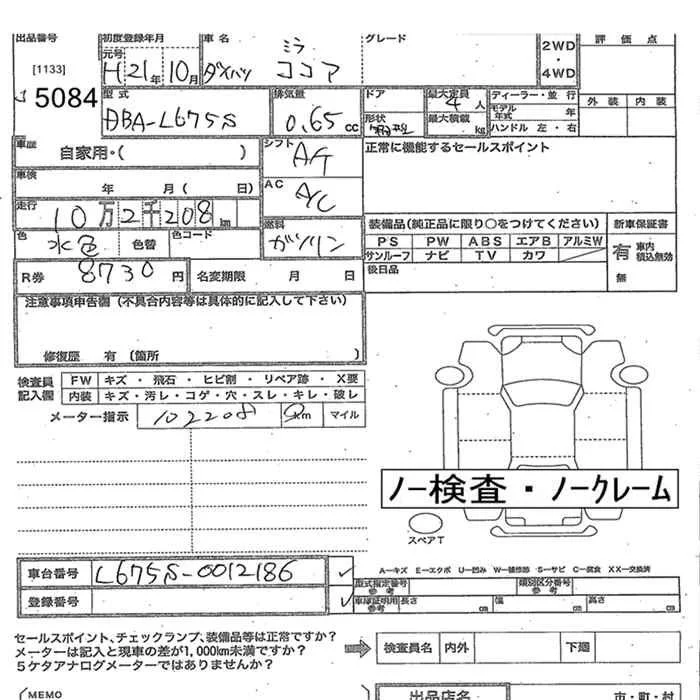 出品番号
初度登録年月
車名
グレード
評価点
[1133]
元号
H21年10月
ミラ
ダイハツ ココア
2WD
・
4WD
5084
型式
排気量
ドア
最大定員
ディーラー・並行
外装 内装
DBA-L675S
0.65cc
4人
モデル年式 年
形状
最大積載 kg
ハンドル 左・右
車歴
自家用・( )
シフト
A/T
正常に機能するセールスポイント
車検
年 月( 日)
AC
A/C
走行
10万2千208km
燃料
ガソリン
装備品(純正品に限り○をつけてください)
新車保証書
色
水色
色替
色コード
PS PW ABS エアB アルミW
有 車内積込無効
R券
8730円
名変期限 月 日
サンルーフ ナビ TV カワ
後日品
無
注意事項申告欄(不具合内容等は具体的に記入して下さい)
修復歴 有 (箇所 )
検査員
記入欄
FW キズ・飛石・ヒビ割・リペア跡・X要
内装 キズ・汚レ・コゲ・穴・スレ・キレ・破レ
メーター指示
102208
km
マイル
ノー検査・ノークレーム
スペアT
車台番号
L675S-0012186
A-キズ E-エクボ U-凹み W-補修跡 S-サビ C-腐食 XX-交換済
型式指定番号
参考
類別区分番号
参考
登録番号
車庫証明用
参考
長さ cm
幅 cm
高さ cm
セールスポイント、チェックランプ、装備品等は正常ですか?
メーターは記入と現車の差が1,000km未満ですか?
5ケタアナログメーターではありませんか?
検査員名
内外
下廻
MEMO
出品店名
市・町・村